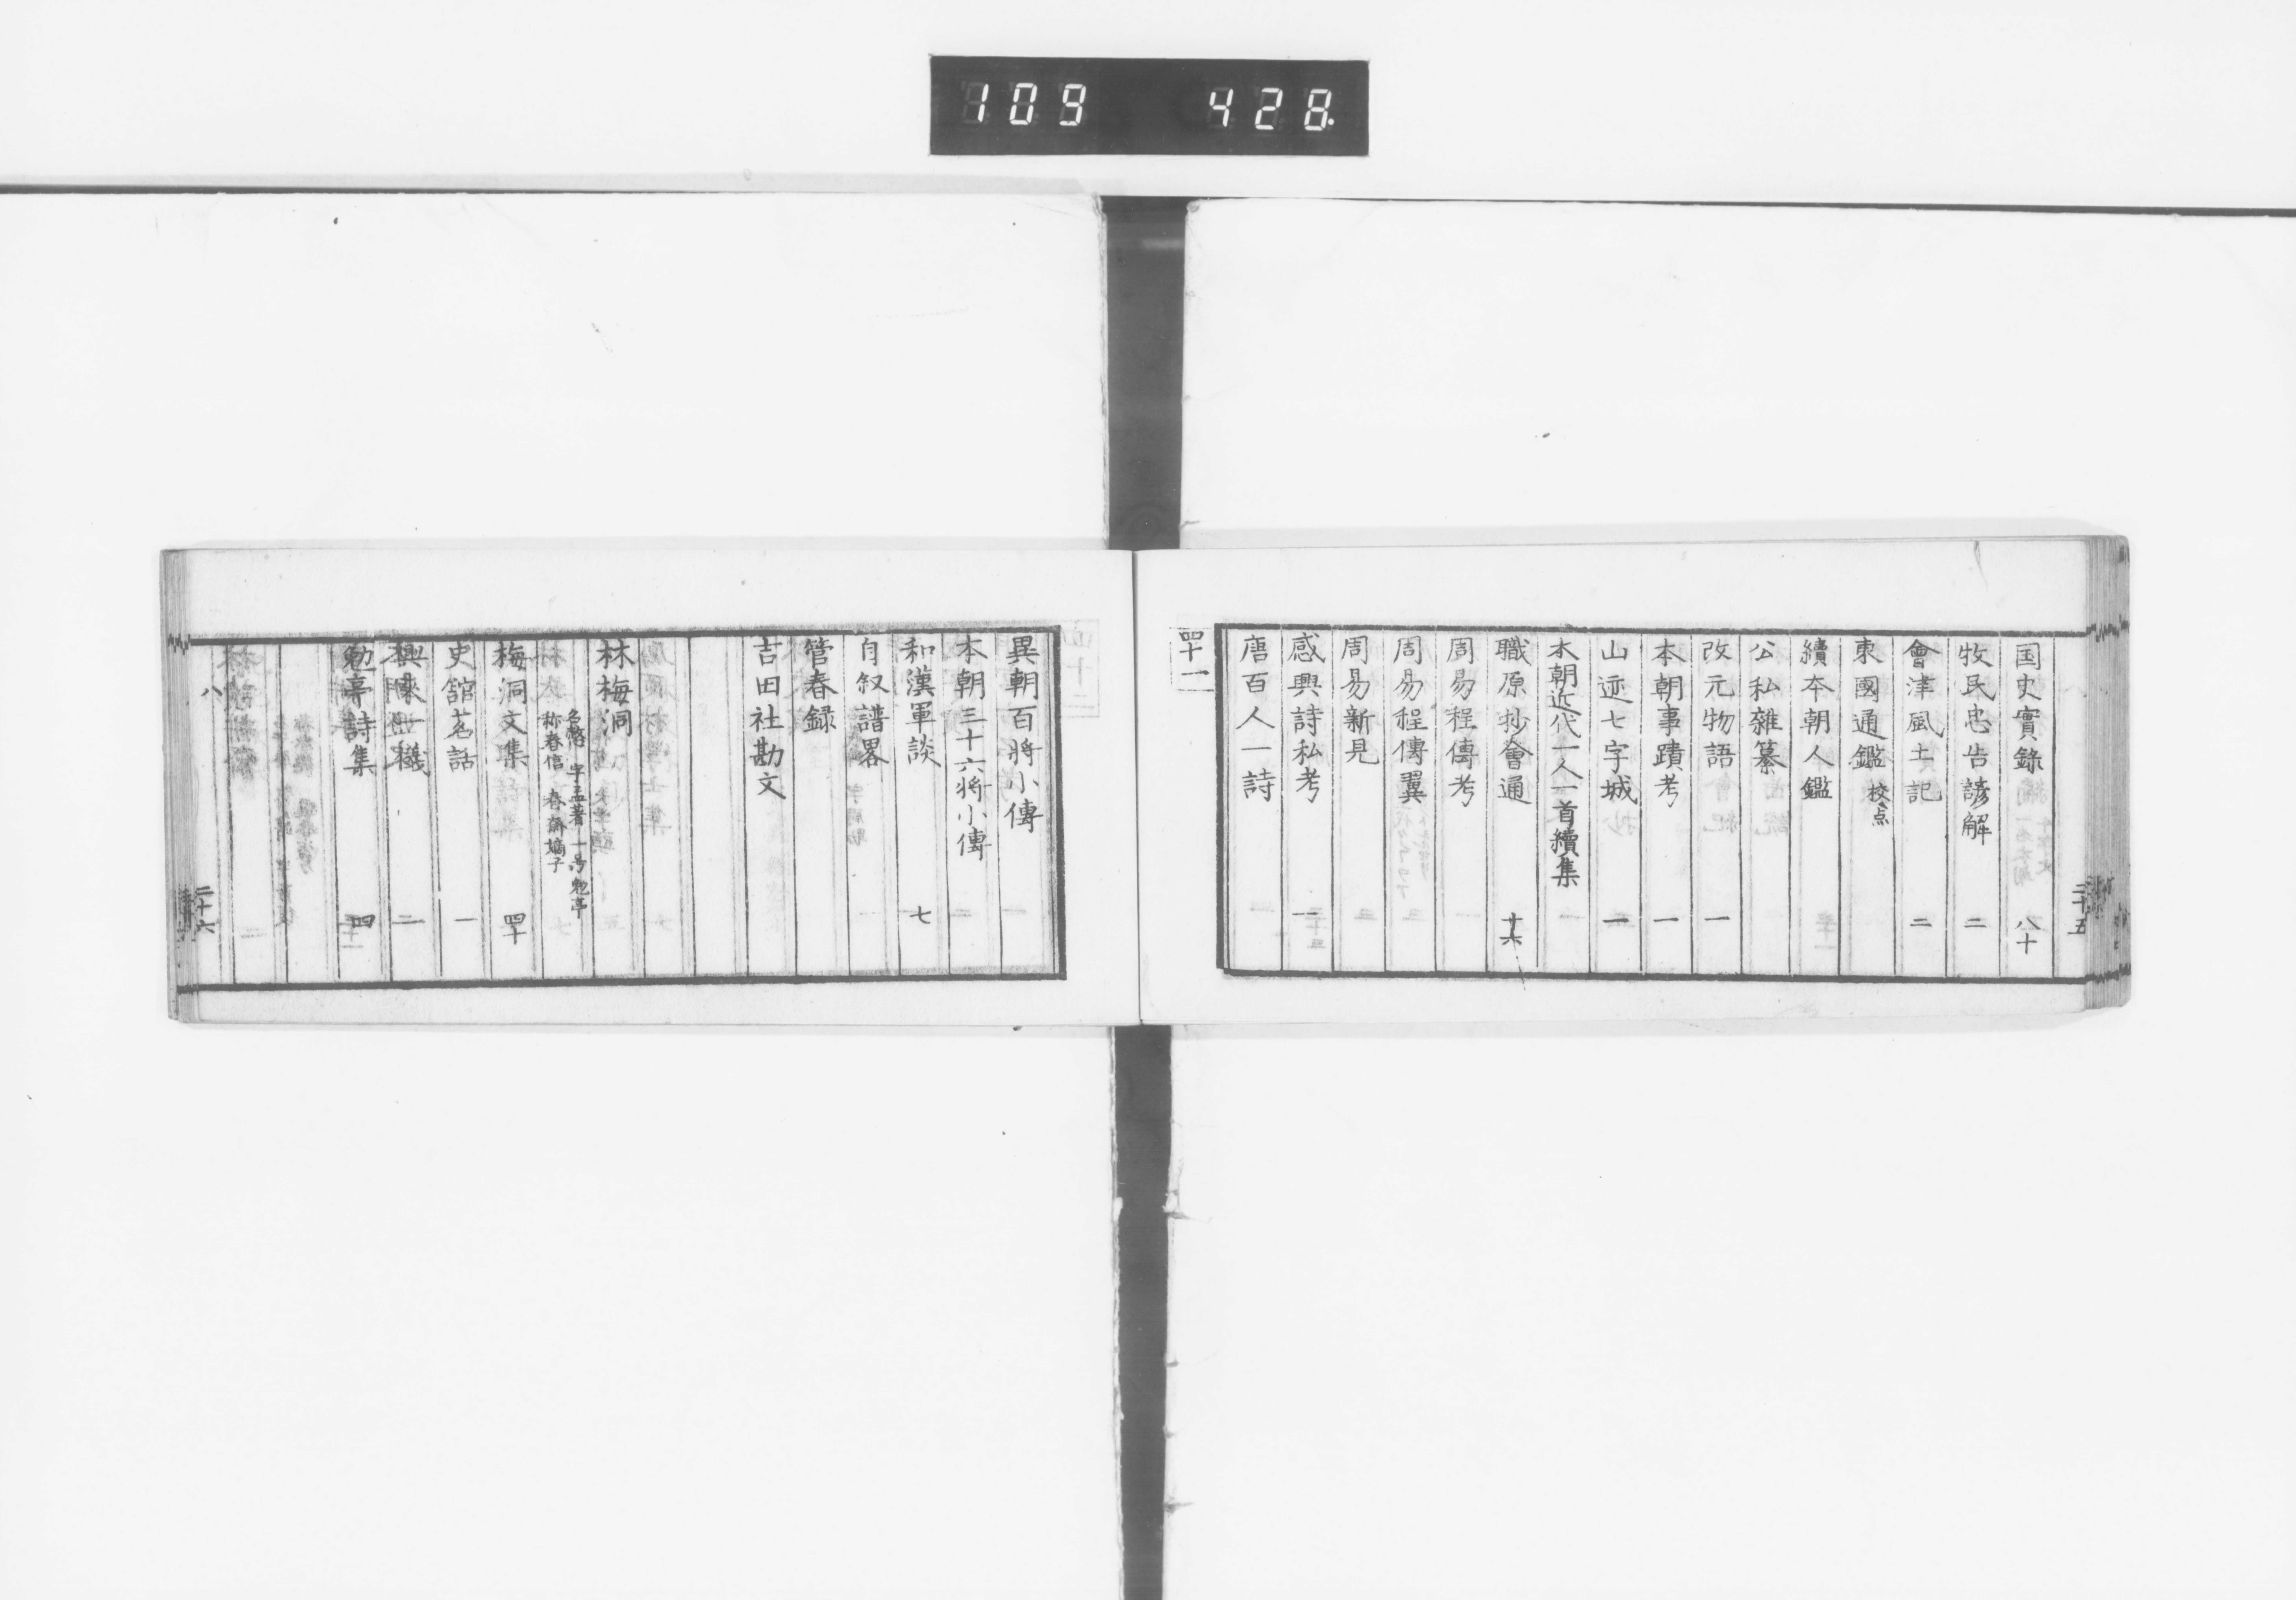 109 428
国史實錄 八十
牧民忠告諺解 二
會津風土記 二
東國通鑑 校点
續本朝人鑑
公私雜纂
改元物語 一
本朝事蹟考 一
山迹七字城 一
本朝近代一人一首續集
職原抄會通 十六
周易程傳考
周易程傳翼
周易新見
感興詩私考 一
唐百人一詩
四十一
二十五
異朝百將小傳
本朝三十六將小傳
和漢軍談 七
自叙譜畧
管春録
吉田社勘文
林梅洞
名愨 字孟著 一号勉亭
称春信 春齋嫡子
梅洞文集 四十
史舘茗話 一
勉亭詩集 四
八
二十六